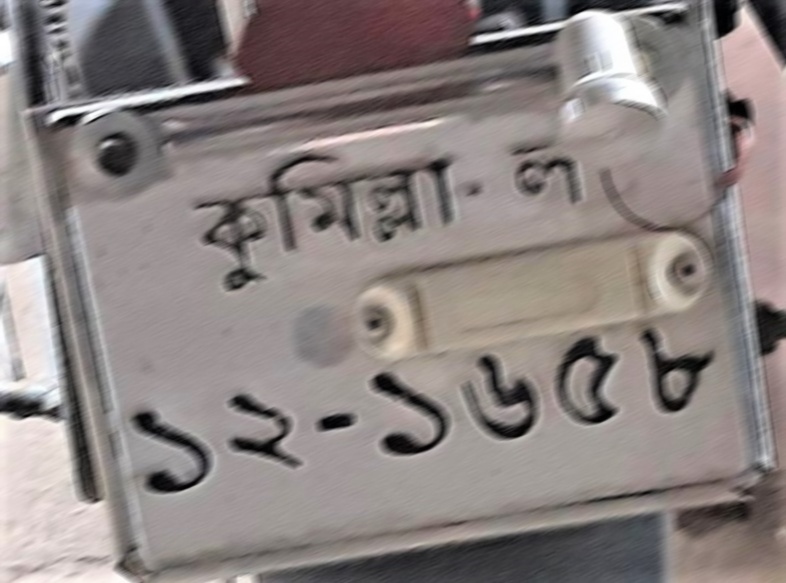 কুমিল্লা - ল
১২-১৬৫৮